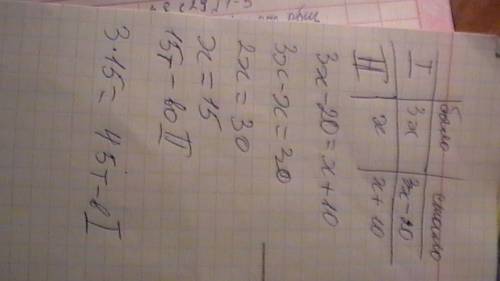 было стало
I 3x 3x-20
II x x+10
3x-20=x+10
3x-x=30
2x=30
x=15
15т-во II
3·15=45т-в I